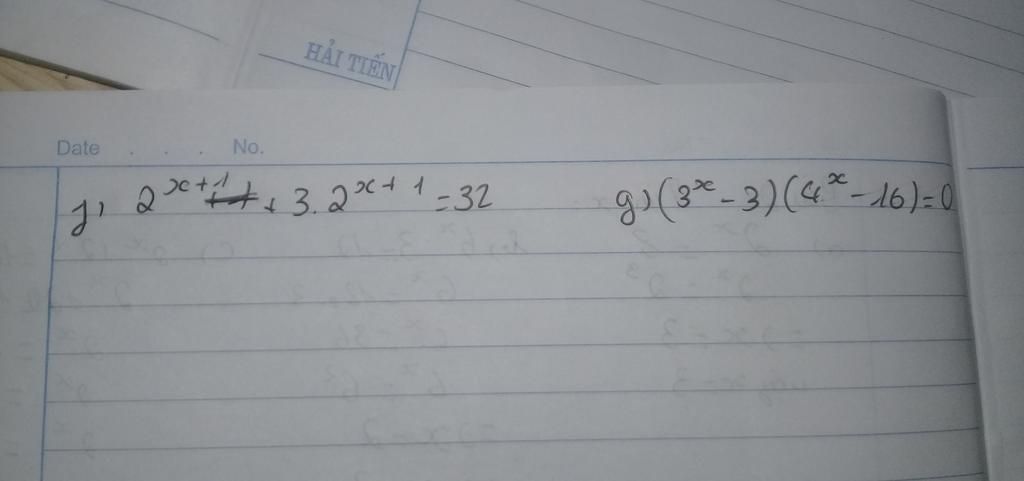 HẢI TIẾN
Date . . . No.
f) 2^{x+1} + 3.2^{x+1} = 32
g) (3^x - 3)(4^x - 16) = 0